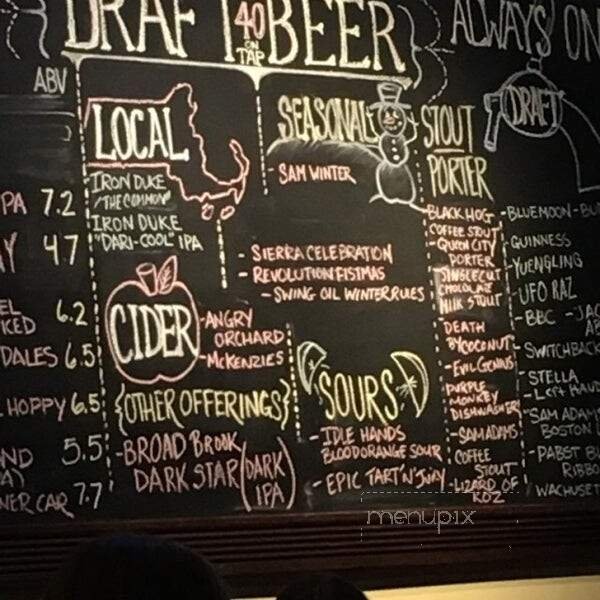 DRAFT 40 ON TAP BEER
ALWAYS ON
DRAFT
ABV
PA 7.2
Y 4.7
EL
KED 6.2
DALES 6.5
HOPPY 6.5
ND 5.5
A)
NER CAR 7.7
LOCAL
IRON DUKE
"THE COMMON"
IRON DUKE
"DARI-COOL" IPA
SEASONAL
- SAM WINTER
- SIERRA CELEBRATION
- REVOLUTION FISTMAS
- SWING OIL WINTER RULES
CIDER
- ANGRY
ORCHARD
- MCKENZIES
{OTHER OFFERINGS}
- BROAD BROOK
DARK STAR (DARK
IPA)
SOURS
- IDLE HANDS
BLOOD ORANGE SOUR
- EPIC TART 'N' JUICY
STOUT
PORTER
- BLACK HOG
COFFEE STOUT
- QUEEN CITY
PORTER
SINGLECUT
CHOCOLATE
MILK STOUT
DEATH
BY COCONUT
- EVIL GENIUS
PURPLE
MONKEY
DISHWASHER
- SAM ADAMS
COFFEE
STOUT
- LIZARD OF
KOZ
- BLUE MOON - BU
- GUINNESS
- YUENGLING
- UFO RAZ
- BBC - JAC
AB
- SWITCHBACK
- STELLA
- LEFT HAND
- SAM ADAMS
BOSTON L
- PABST BL
RIBBO
- WACHUSET
menupix